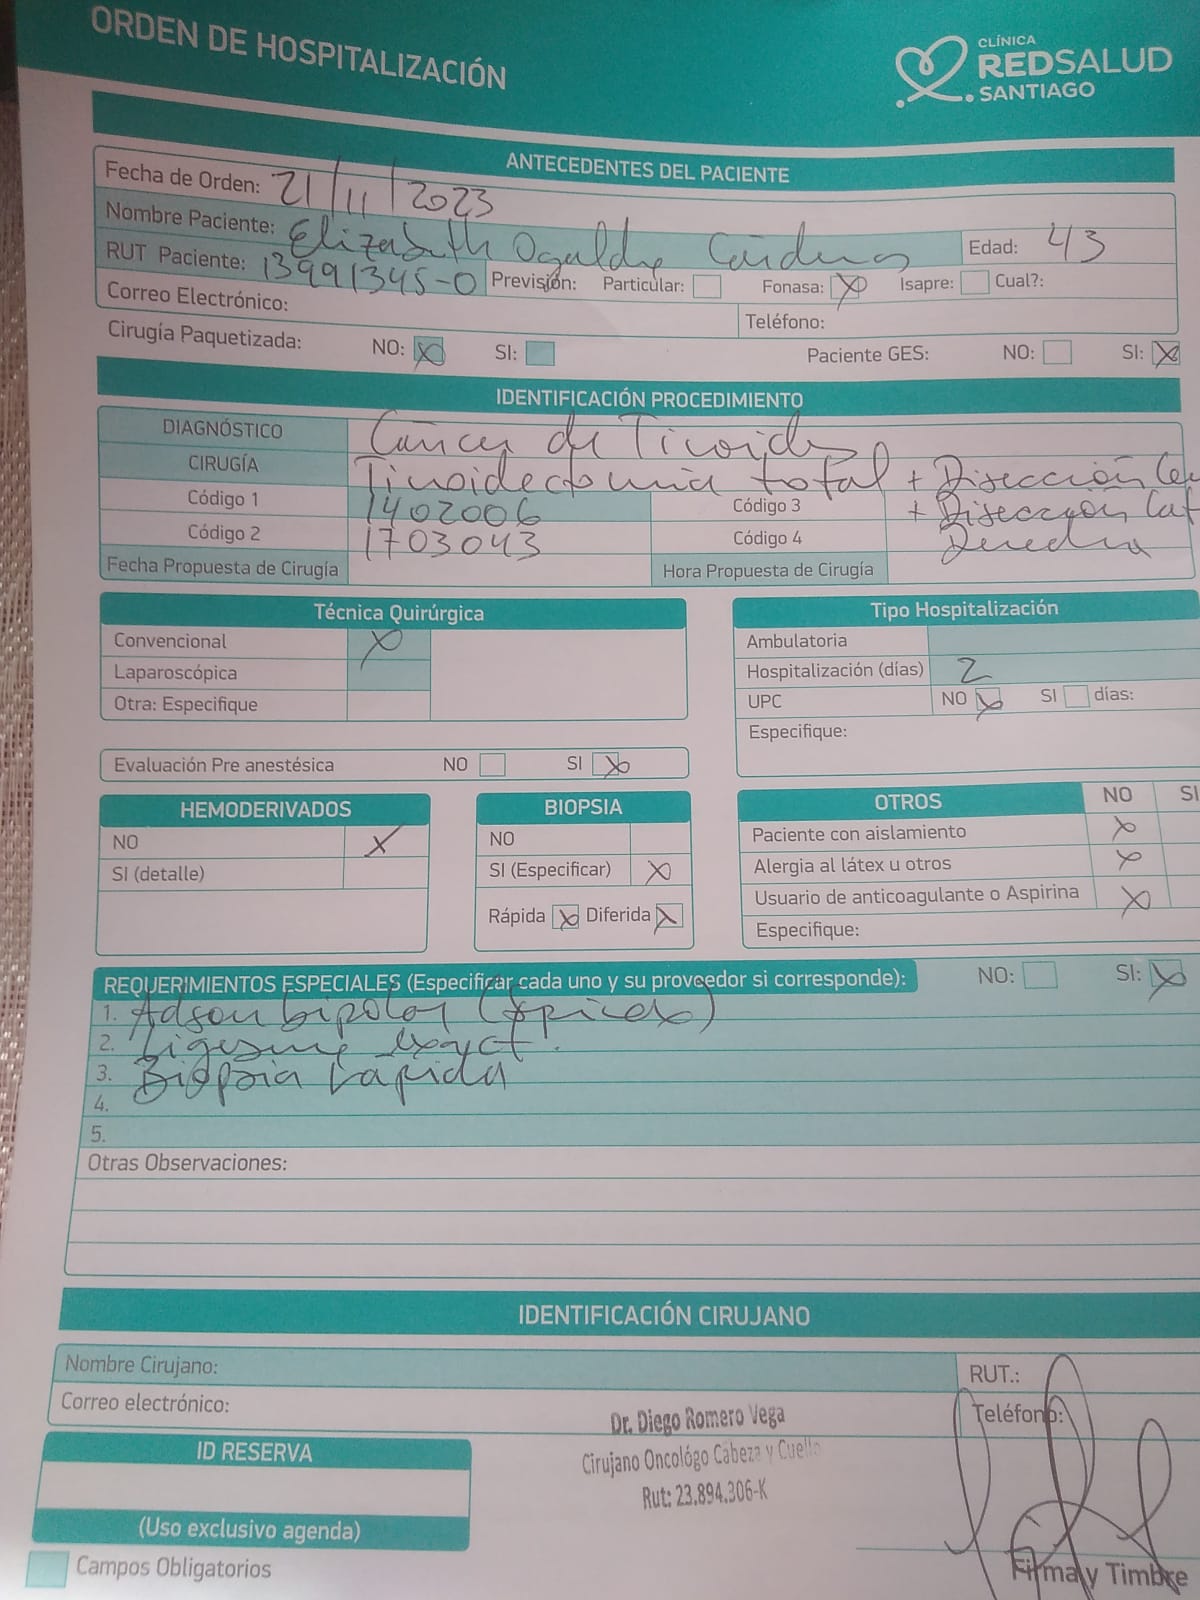 ORDEN DE HOSPITALIZACIÓN
CLÍNICA
REDSALUD
SANTIAGO
ANTECEDENTES DEL PACIENTE
Fecha de Orden: 21/11/2023
Nombre Paciente: Elizabeth Ogalde Cárdenas Edad: 43
RUT Paciente: 13991345-0 Previsión: Particular: Fonasa: X Isapre: Cual?:
Correo Electrónico: Teléfono:
Cirugía Paquetizada: NO: X SI: Paciente GES: NO: SI: X
IDENTIFICACIÓN PROCEDIMIENTO
DIAGNÓSTICO Cáncer de Tiroides
CIRUGÍA Tiroidectomía total + Disección
Código 1 1402006 Código 3 + Disección
Código 2 1703043 Código 4 Derecha
Fecha Propuesta de Cirugía Hora Propuesta de Cirugía
Técnica Quirúrgica
Convencional X
Laparoscópica
Otra: Especifique
Tipo Hospitalización
Ambulatoria
Hospitalización (días) 2
UPC NO X SI días:
Especifique:
Evaluación Pre anestésica NO SI X
HEMODERIVADOS
NO X
SI (detalle)
BIOPSIA
NO
SI (Especificar) X
Rápida X Diferida X
OTROS NO SI
Paciente con aislamiento X
Alergia al látex u otros X
Usuario de anticoagulante o Aspirina X
Especifique:
REQUERIMIENTOS ESPECIALES (Especificar cada uno y su proveedor si corresponde): NO: SI: X
1. Adson bipolar
2. Ligasure exact.
3. Biopsia rápida
4.
5.
Otras Observaciones:
IDENTIFICACIÓN CIRUJANO
Nombre Cirujano: RUT.:
Correo electrónico: Teléfono:
Dr. Diego Romero Vega
Cirujano Oncológo Cabeza y Cuello
Rut: 23.894.306-K
ID RESERVA
(Uso exclusivo agenda)
Campos Obligatorios
Firma y Timbre